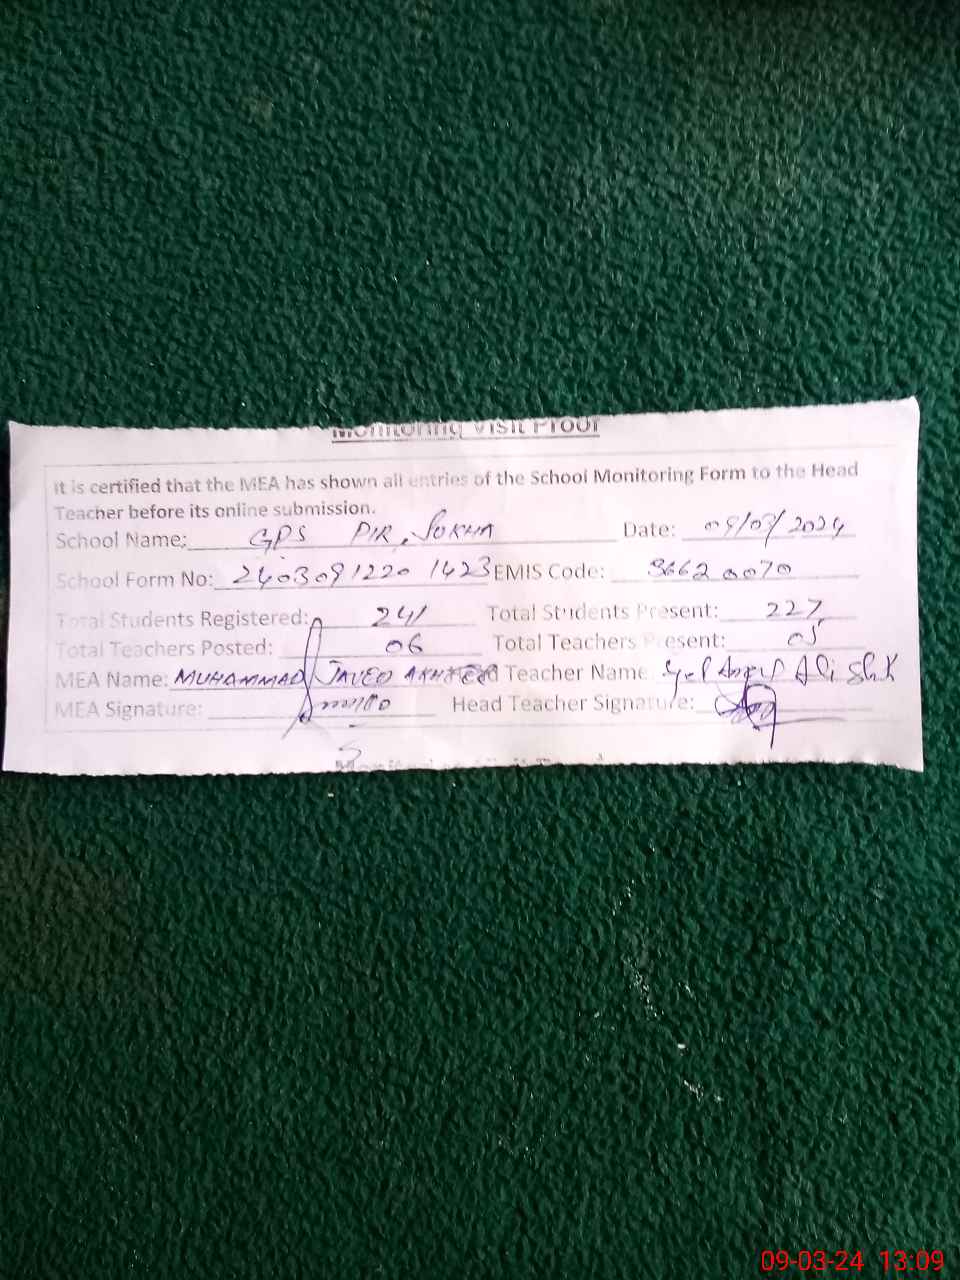 Monitoring Visit Proof
It is certified that the MEA has shown all entries of the School Monitoring Form to the Head
Teacher before its online submission.
School Name: GPS PIR SOKHA Date: 09/03/2024
School Form No: 2403091220 1423 EMIS Code: 36620070
Total Students Registered: 241 Total Students Present: 227
Total Teachers Posted: 06 Total Teachers Present: 05
MEA Name: MUHAMMAD JAVED AKHTER Head Teacher Name Ali
MEA Signature: Head Teacher Signature:
09-03-24 13:09